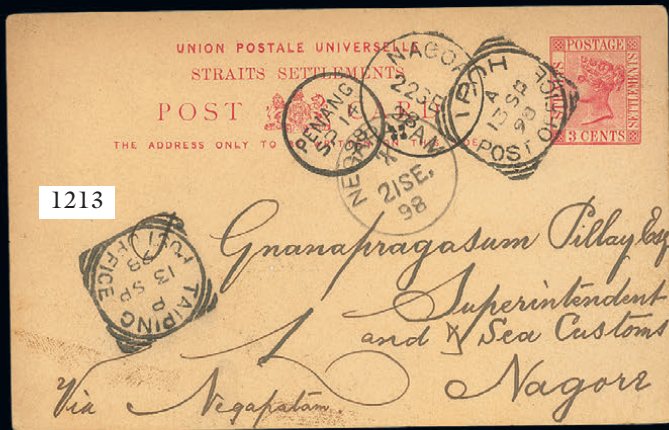 UNION POSTALE UNIVERSELLE
STRAITS SETTLEMENTS
POST CARD
THE ADDRESS ONLY TO BE WRITTEN ON THIS SIDE
POSTAGE
STRAITS SETTLEMENTS
3 CENTS
PENANG
SP 14
98
NAGORE
22 SE
98
NEGAPATAM
21 SE.
98
IPOH
A
13 SP
98
POST OFFICE
1213
POST OFFICE
13 SP
98
TAIPING
Gnanapragasum Pillay Esq
Superintendent
and Sea Customs
Nagore
Via Negapatam